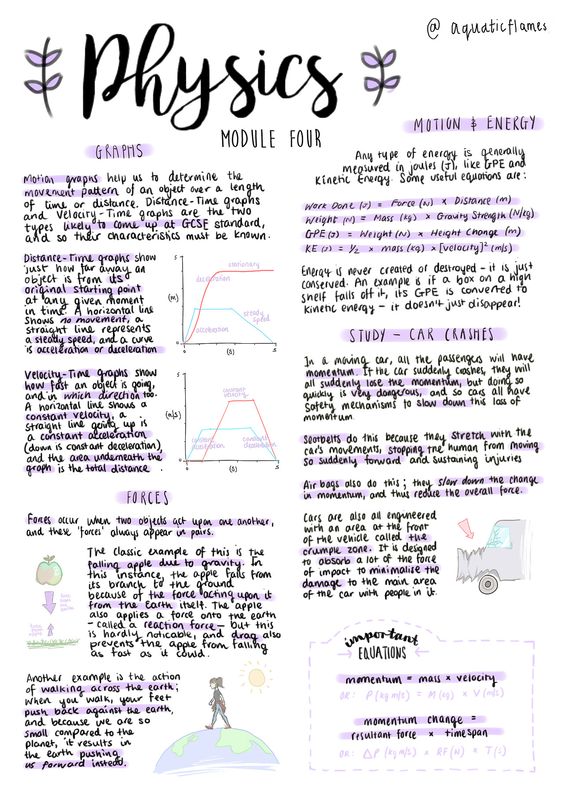 @ aquaticflames
Physics
MODULE FOUR
GRAPHS
Motion graphs help us to determine the
movement pattern of an object over a length
of time or distance. Distance-Time graphs
and Velocity-Time graphs are the two
types likely to come up at GCSE standard,
and so their characteristics must be known.
Distance-Time graphs show
just how far away an
object is from its
original starting point
at any given moment
in time. A horizontal line
shows no movement, a
straight line represents
a steady speed, and a curve
is acceleration or deceleration
5
(M)
stationary
deceleration
steady
speed
acceleration
0
(S)
5
Velocity-Time graphs show
how fast an object is going,
and in which direction too.
A horizontal line shows a
constant velocity, a
straight line going up is
a constant acceleration
(down is constant deceleration)
and the area underneath the
graph is the total distance.
5
(M/S)
constant
velocity
constant
acceleration
constant
deceleration
0
(S)
5
FORCES
Forces occur when two objects act upon one another,
and these 'forces' always appear in pairs.
The classic example of this is the
falling apple due to gravity. In
this instance, the apple falls from
its branch to the ground
because of the force acting upon it
from the Earth itself. The apple
also applies a force onto the earth
- called a reaction force - but this
is hardly noticable, and drag also
prevents the apple from falling
as fast as it could.
Another example is the action
of walking across the earth;
when you walk, your feet
push back against the earth,
and because we are so
small compared to the
planet, it results in
the earth pushing
us forward instead.
MOTION & ENERGY
Any type of energy is generally
measured in joules (J), like GPE and
Kinetic Energy. Some useful equations are:
Work Done (J) = Force (N) x Distance (m)
Weight (N) = Mass (kg) x Gravity Strength (N/kg)
GPE (J) = Weight (N) x Height Change (m)
KE (J) = 1/2 x mass (kg) x [velocity]² (m/s)
Energy is never created or destroyed - it is just
conserved. An example is if a box on a high
shelf falls off it, its GPE is converted to
kinetic energy - it doesn't just disappear!
STUDY - CAR CRASHES
In a moving car, all the passengers will have
momentum. If the car suddenly crashes, they will
all suddenly lose the momentum, but doing so
quickly is very dangerous, and so cars all have
safety mechanisms to slow down this loss of
momentum.
Seatbelts do this because they stretch with the
car's movements, stopping the human from moving
so suddenly forward and sustaining injuries
Air bags also do this; they slow down the change
in momentum, and thus reduce the overall force.
Cars are also all engineered
with an area at the front
of the vehicle called the
crumple zone. It is designed
to absorb a lot of the force
of impact to minimalise the
damage to the main area
of the car with people in it.
important
EQUATIONS
momentum = mass x velocity
OR: P (kg m/s) = M (kg) x V (m/s)
momentum change =
resultant force x timespan
OR: ΔP (kg m/s) x RF (N) x T (s)